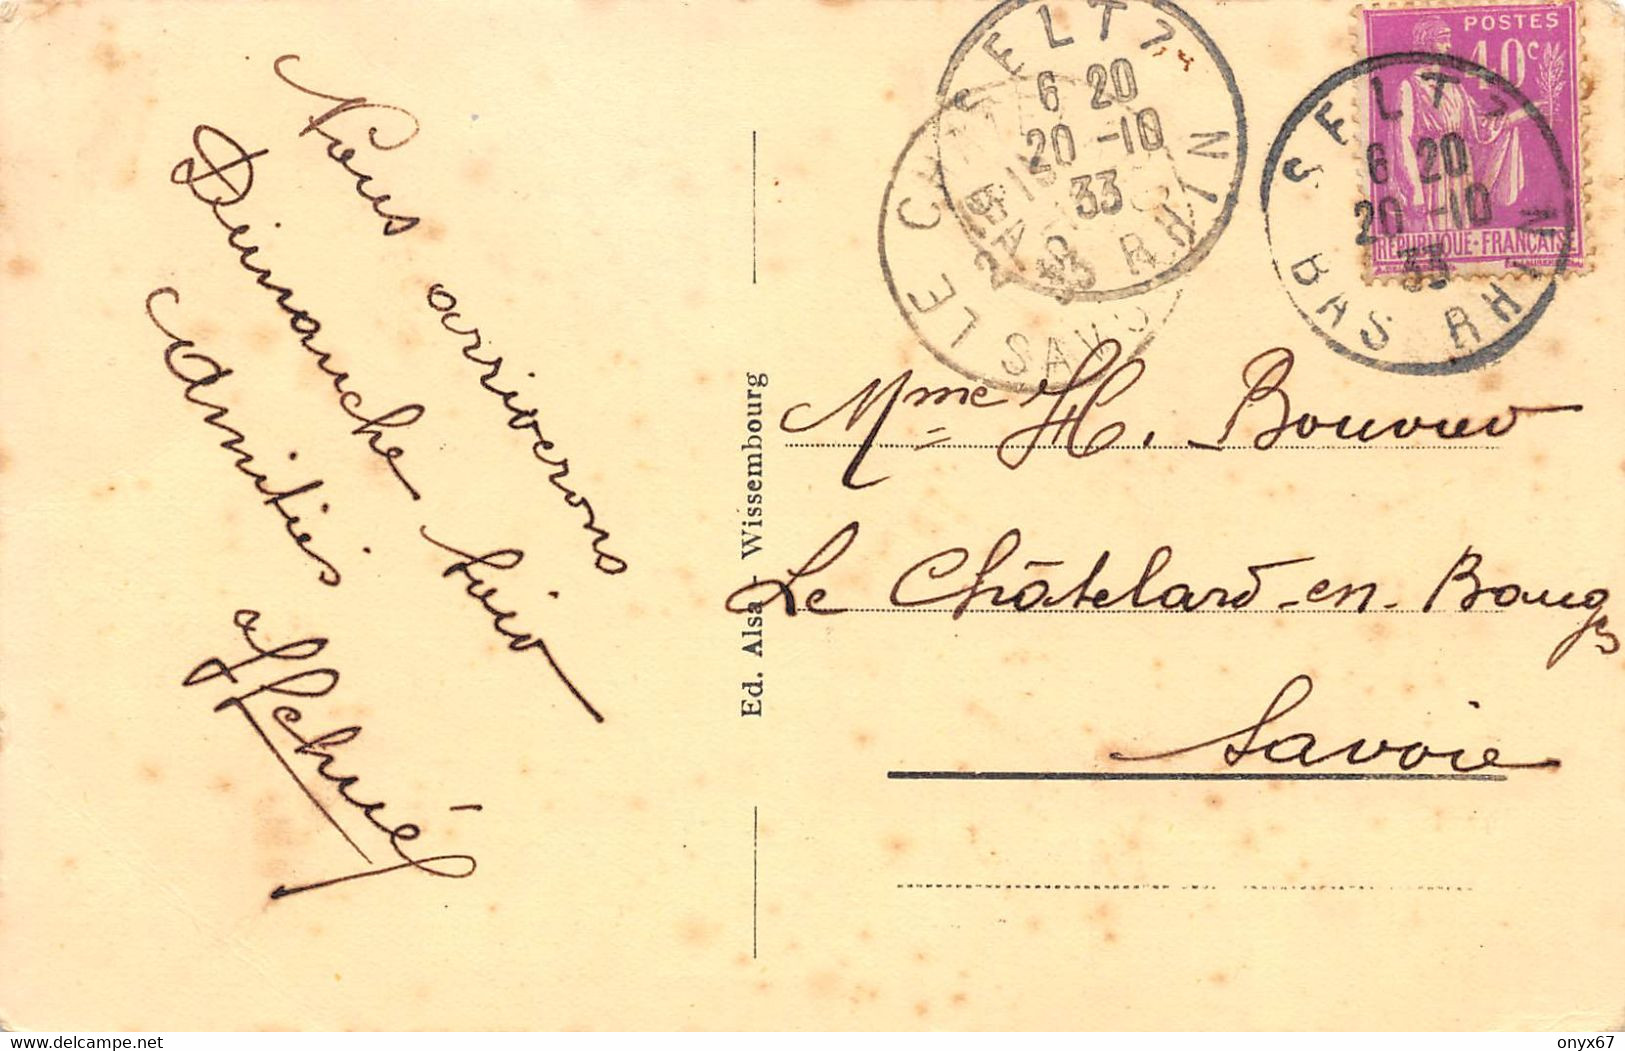 Nous arriverons
Dimanche soir
Amitiés
Ed. Alsa - Wissembourg
SELTZ
6 20
20 -10
33
BAS RHIN
LE CHATELARD
21
33
SAVOIE
POSTES
40c
REPUBLIQUE-FRANÇAISE
SELTZ
6 20
20 -10
33
BAS RHIN
Mme H. Bouvier
Le Châtelard-en-Bauges
Savoie
www.delcampe.net
onyx67